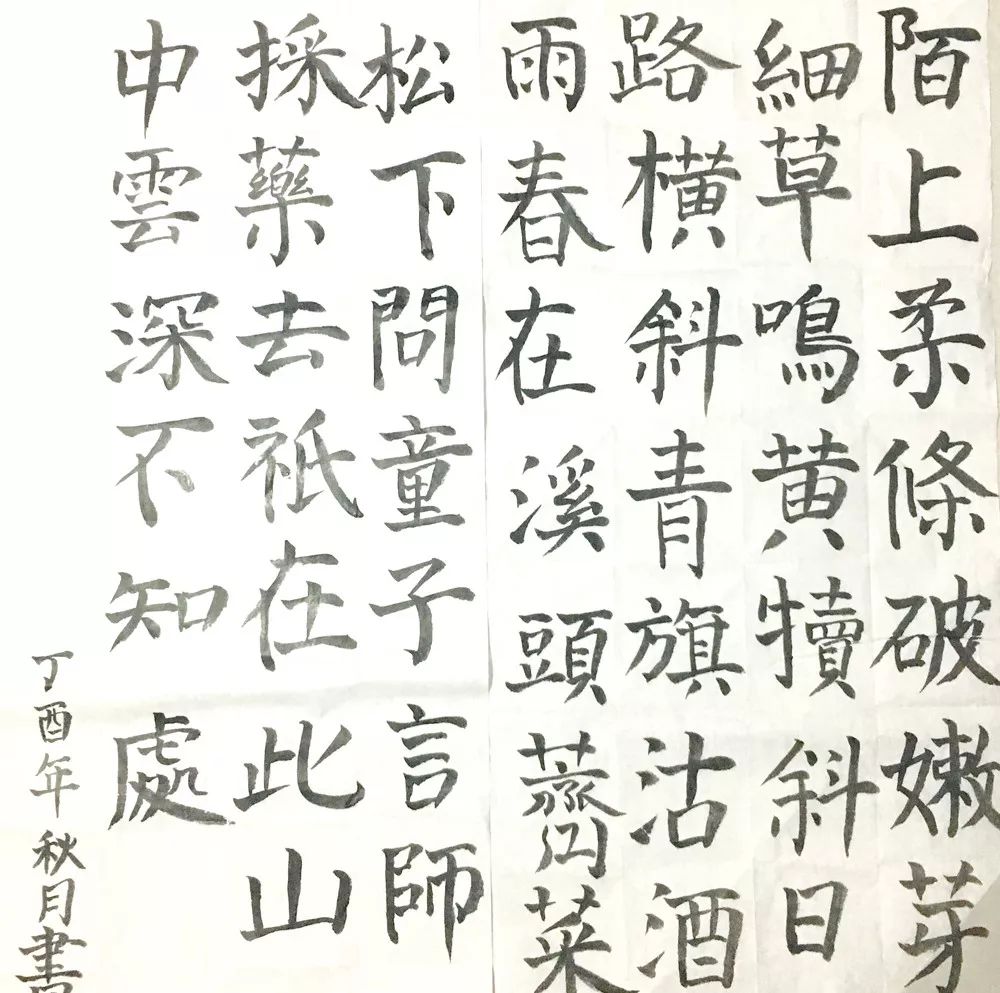 陌上柔條破嫩芽
細草鳴黄犢斜日
路橫斜青旗沽酒
雨春在溪頭薺菜
松下問童子言師
採藥去祇在此山
中雲深不知處
丁酉年秋月書